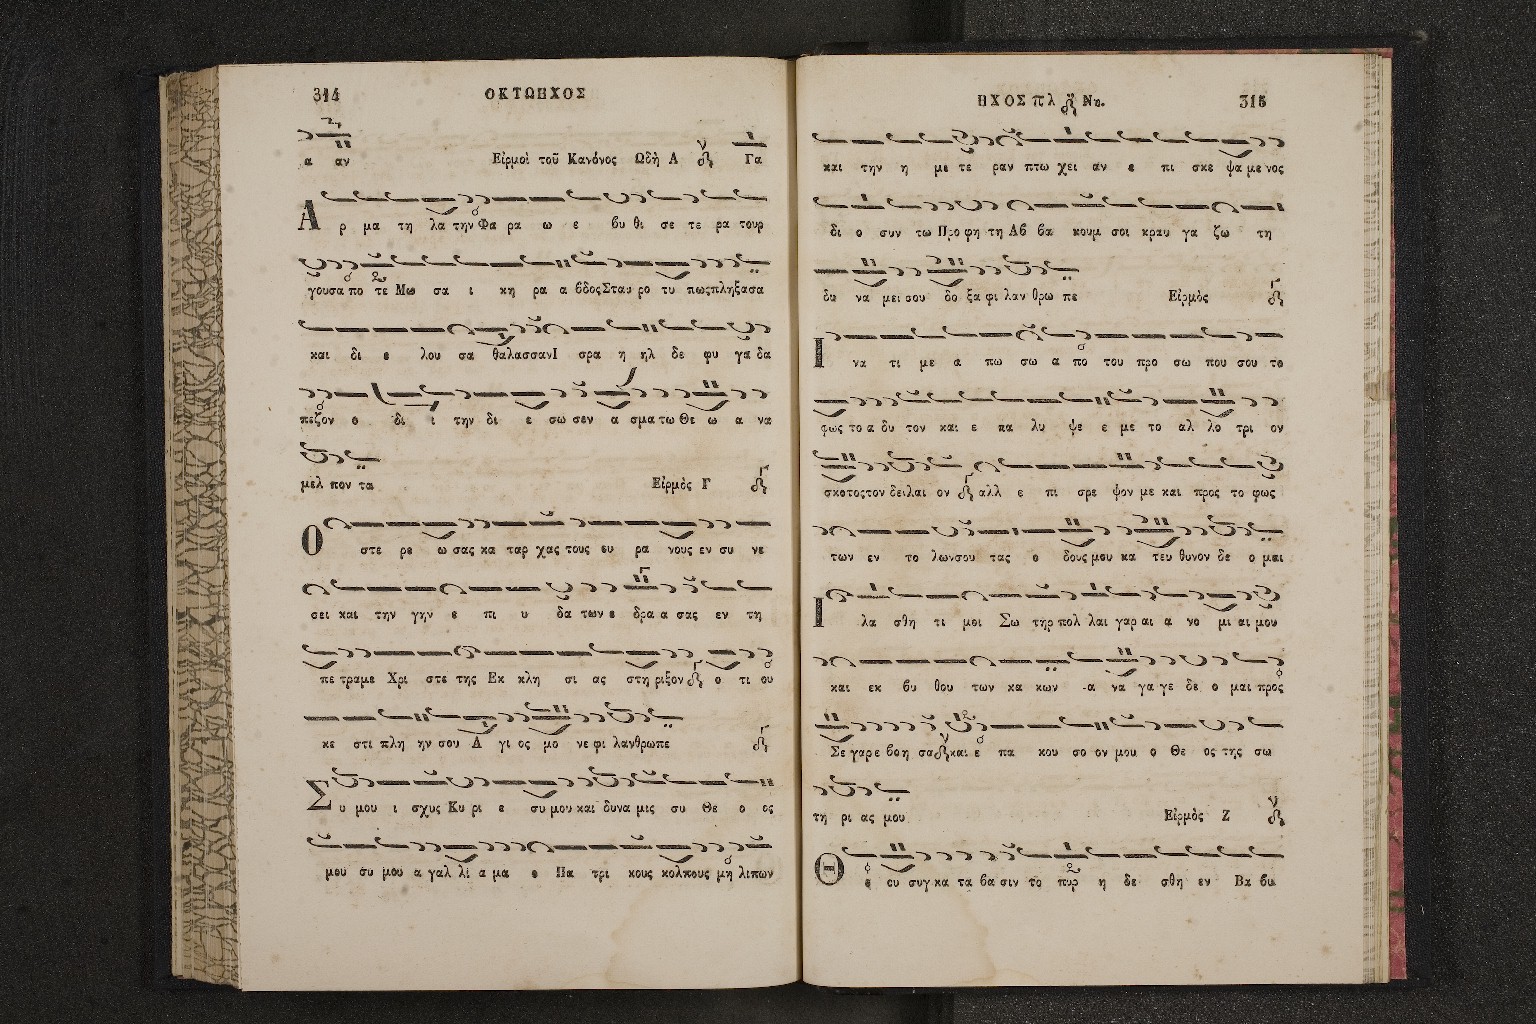 314 ΟΚΤΩΗΧΟΣ
α αν Εἱρμοὶ τοῦ Κανόνος Ωδὴ Α Γα
Α ρ μα τη λα την Φα ρα ω ε βυ θι σε τε ρα τουρ
γουσα πο τε Μω σα ι κη ρα α βδος Σταυ ρο τυ πως πληξασα
και δι ε λου σα θαλασσαν Ι σρα η ηλ δε φυ γα δα
πεζον ο δι ι την δι ε σω σεν α σμα τω Θε ω α να
μελ πον τα Εἱρμὸς Γ
Ο στε ρε ω σας κα ταρ χας τους ου ρα νους εν συ νε
σει και την γην ε πι υ δα των ε δρα α σας εν τη
πε τρα με Χρι στε της Εκ κλη σι ας στη ριξον ο τι ου
κε στι πλη ην σου Α γι ος μο νε φι λανθρωπε
Σ υ μου ι σχυς Κυ ρι ε συ μου και δυνα μις συ Θε ο ος
μου συ μου α γαλ λι α μα ο Πα τρι κους κολπους μη λιπων
ΗΧΟΣ πλ Νη. 315
και την η με τε ραν πτω χει αν ε πι σκε ψα με νος
δι ο συν τω Προ φη τη Αβ βα κουμ σοι κραυ γα ζω τη
δυ να μει σου δο ξα φι λαν θρω πε Εἱρμὸς
Ι να τι με α πω σω α πο του προ σω που σου το
φως το α δυ τον και ε κα λυ ψε ε με το αλ λο τρι ον
σκοτος τον δειλαι ον αλλ ε πι σρε ψον με και προς το φως
των εν το λων σου τας ο δους μου κα τευ θυνον δε ο μαι
Ι λα σθη τι μοι Σω τηρ πολ λαι γαρ αι α νο μι αι μου
και εκ βυ θου των κα κων α να γα γε δε ο μαι προς
Σε γαρ ε βοη σα και ε πα κου σο ον μου ο Θε ος της σω
τη ρι ας μου Εἱρμὸς Ζ
Θ ε ου συγ κα τα βα σιν το πυρ η δε σθη εν Βα βυ